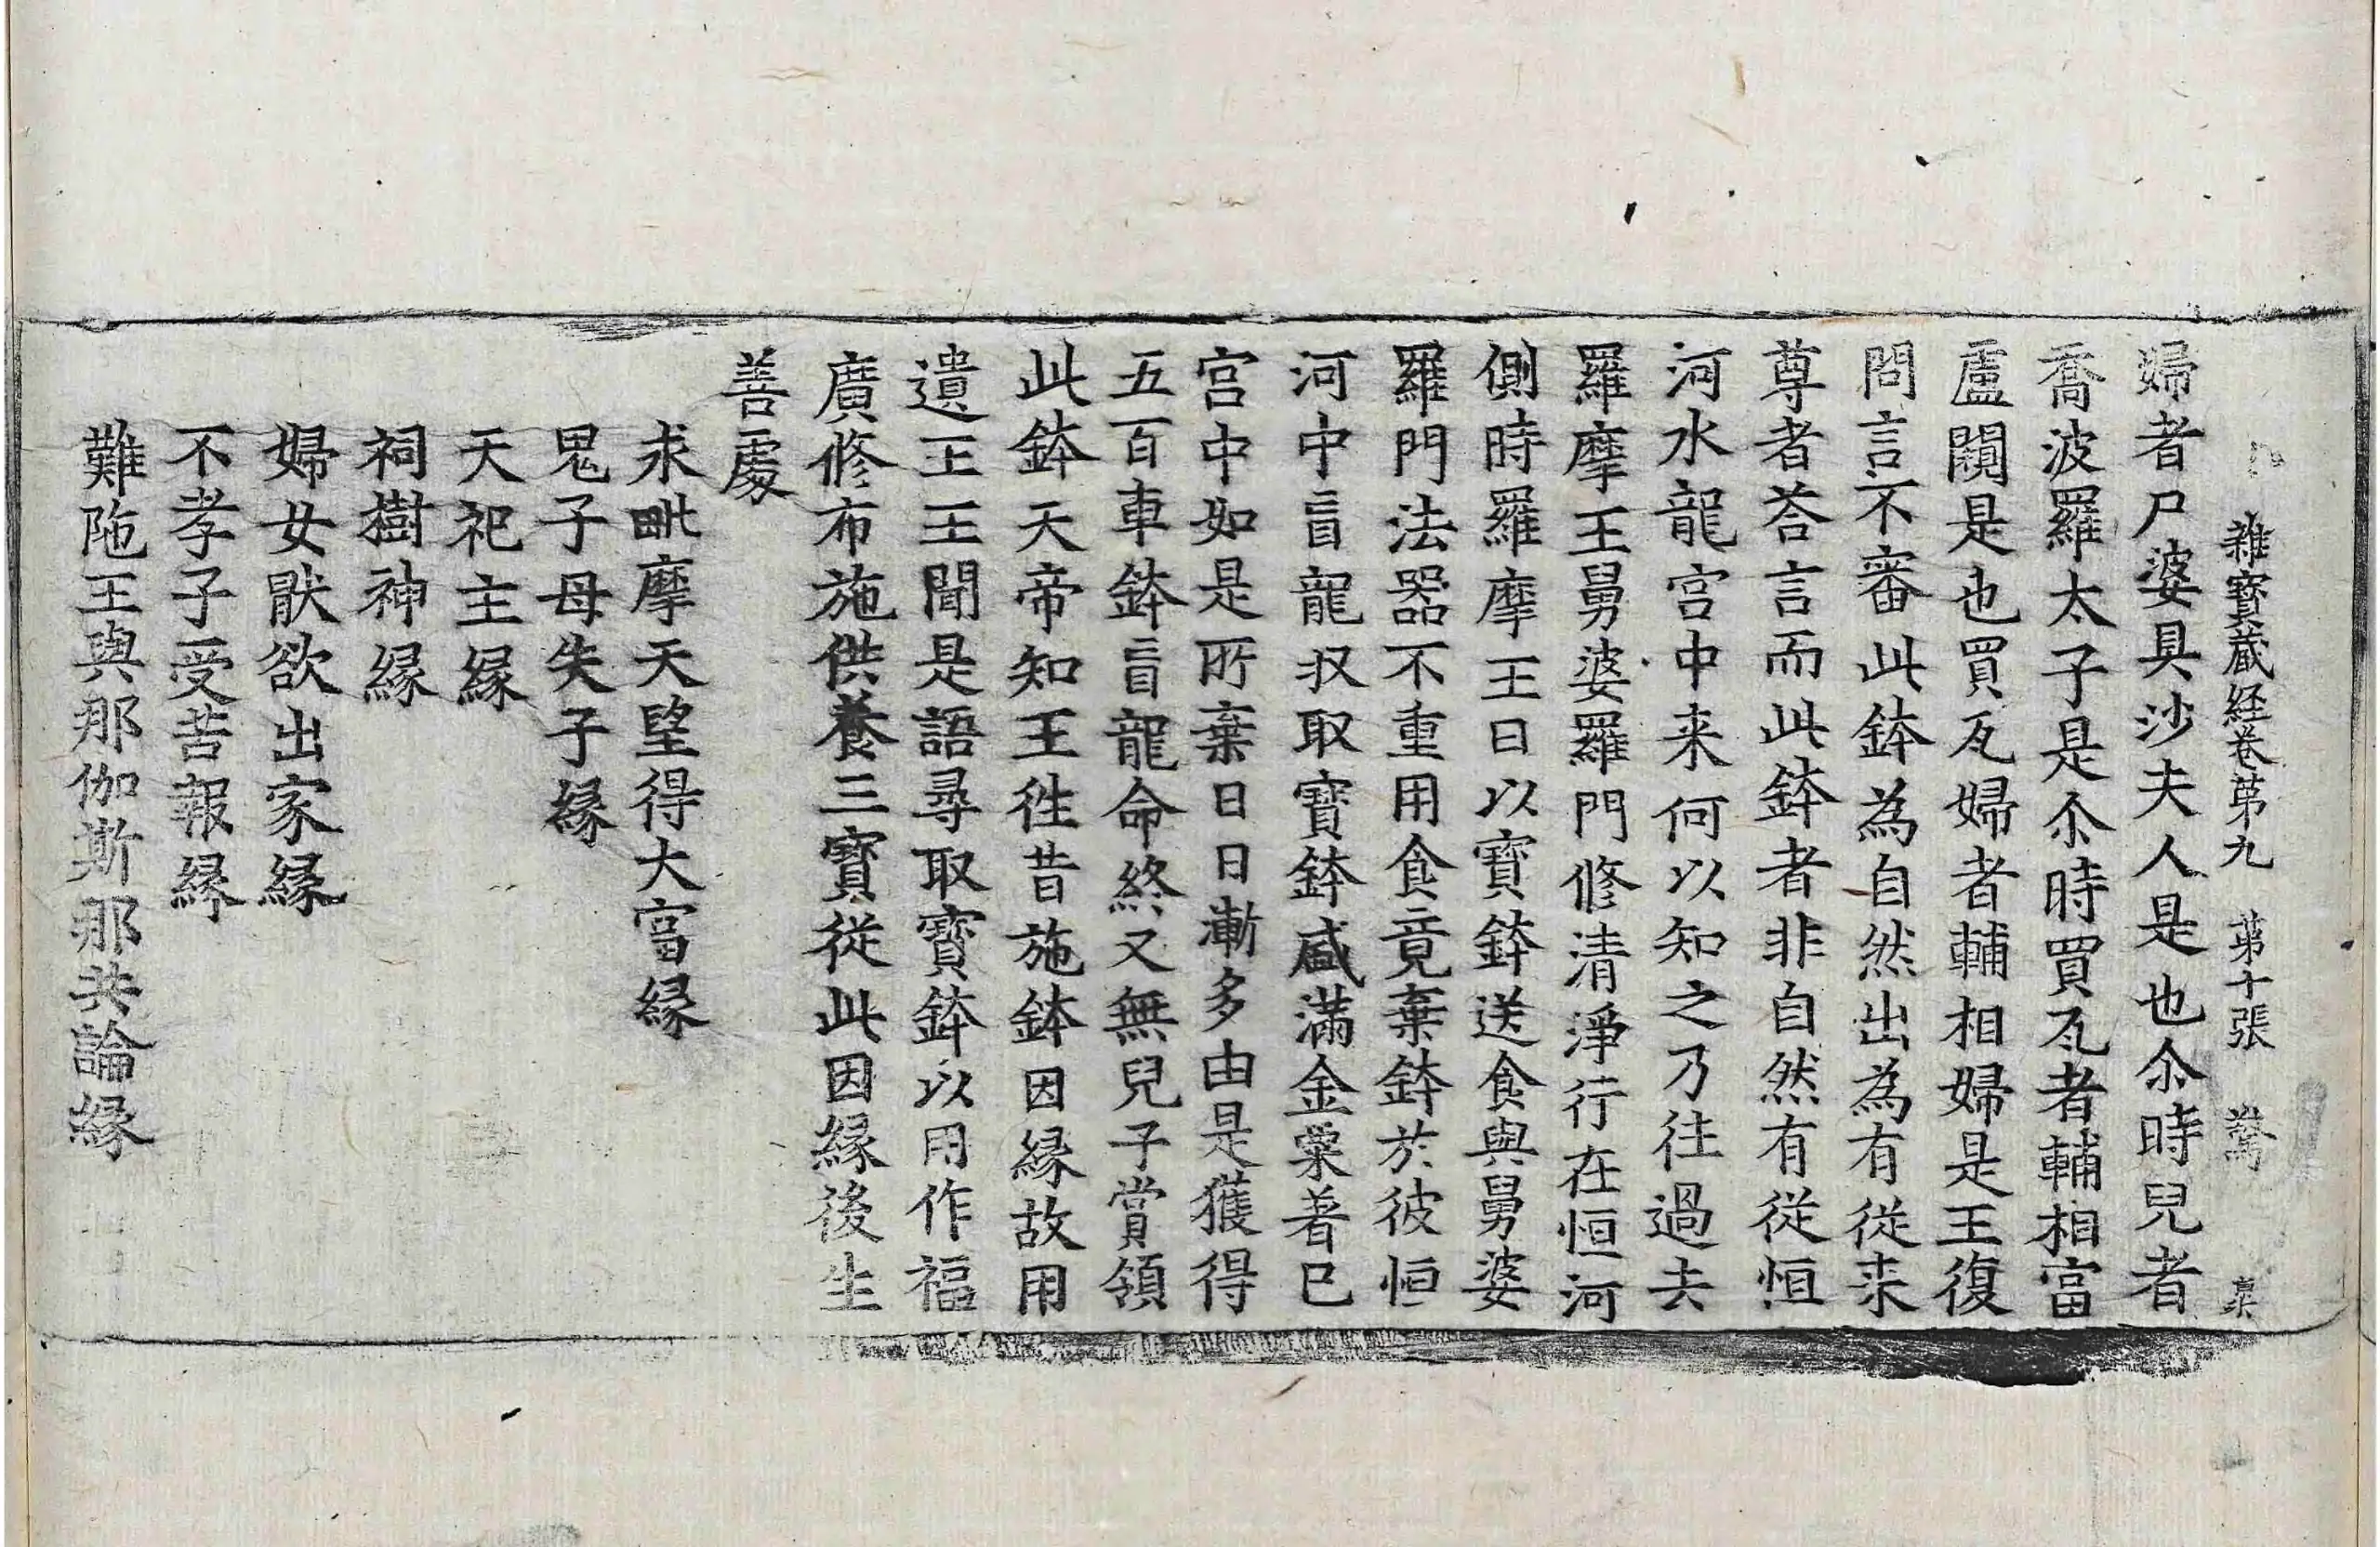 雜寶蔵経卷第九 第十張 驚
婦者尸婆具沙夫人是也尒時兒者
喬波羅太子是尒時買瓦者輔相富
盧闚是也買瓦婦者輔相婦是王復
問言不審此鉢為自然出為有從来
尊者荅言而此鉢者非自然有從恒
河水龍宫中来何以知之乃往過去
羅摩王舅婆羅門修清淨行在恒河
側時羅摩王日以寶鉢送食與舅婆
羅門法器不重用食竟棄鉢於彼恒
河中盲龍収取寶鉢盛滿金粟著已
宫中如是所棄日日漸多由是獲得
五百車鉢盲龍命終又無兒子賞領
此鉢天帝知王徃昔施鉢因縁故用
遺王王聞是語尋取寶鉢以用作福
廣修布施供養三寶從此因縁後生
善處
求毗摩天望得大富縁
鬼子母失子縁
天祀主縁
祠樹神縁
婦女猒欲出家縁
不孝子受苦報縁
難陁王與那伽斯那共論縁